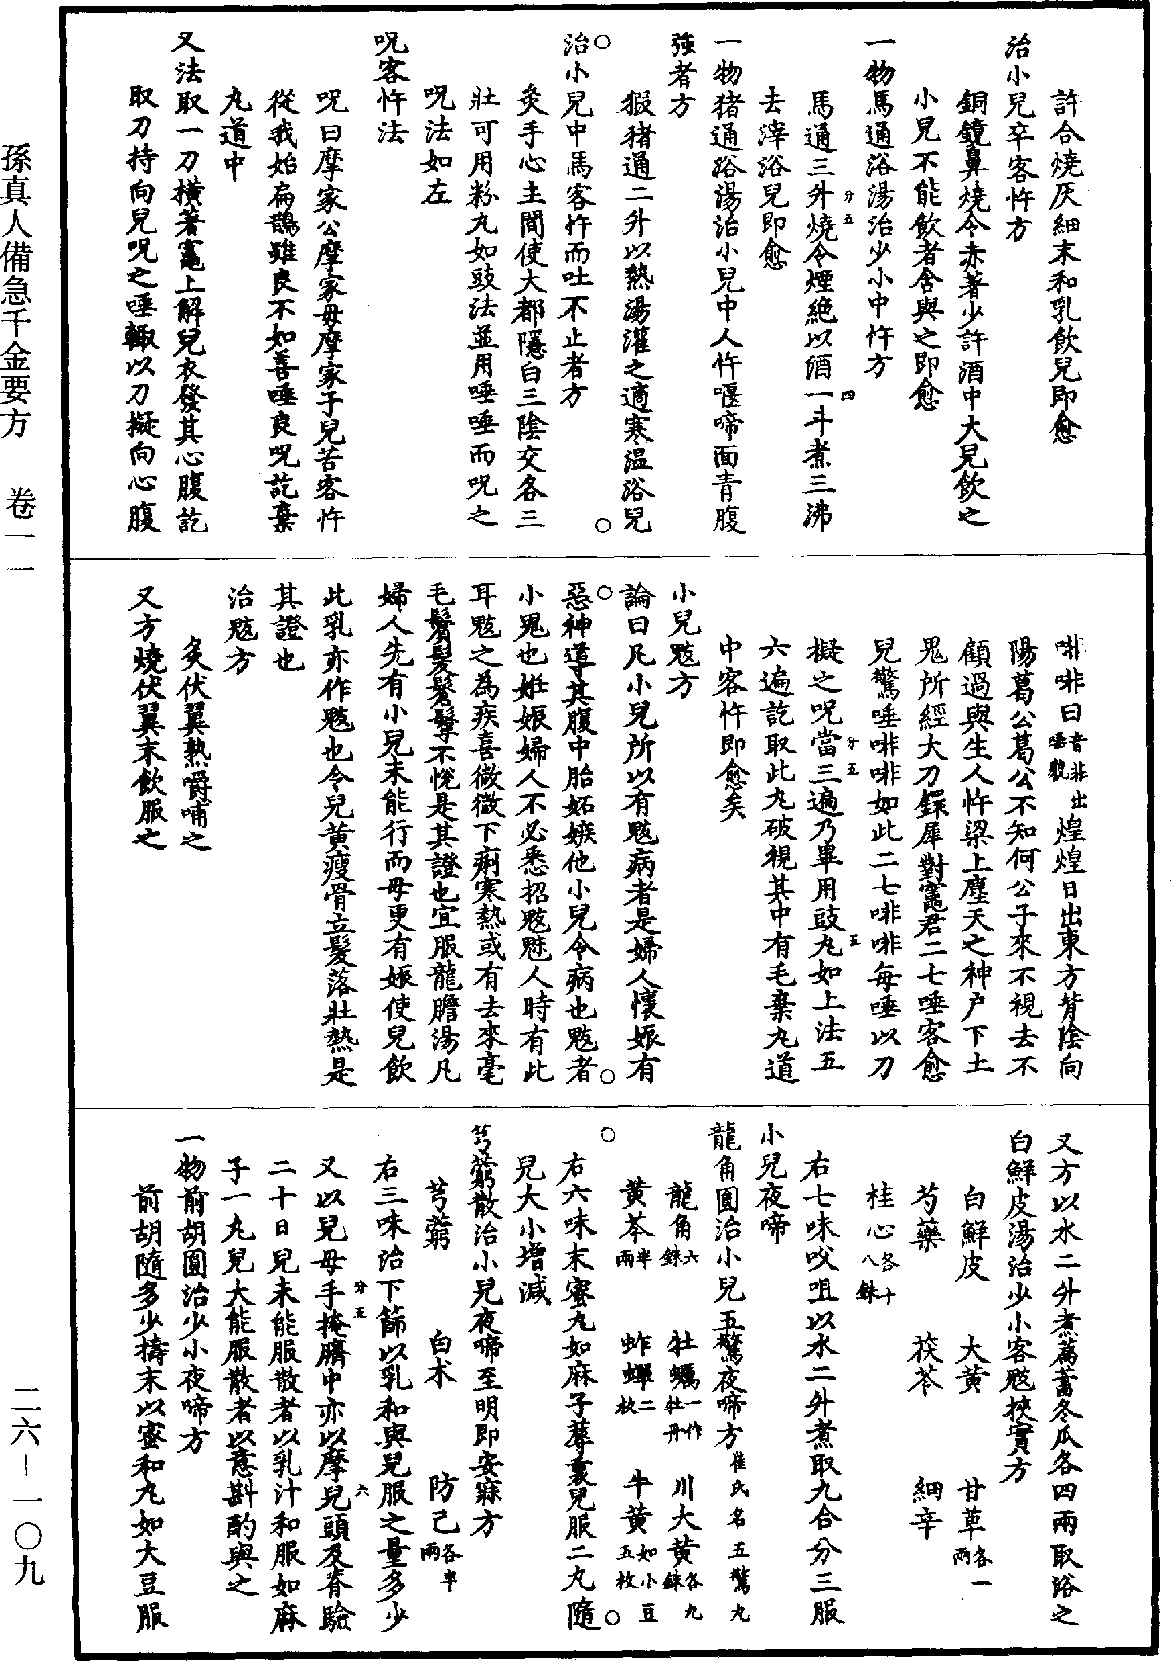 許合燒灰細末和乳飲兒即愈
治小兒卒客忤方
銅鏡鼻燒令赤著少許酒中大兒飲之
小兒不能飲者含與之即愈
一物馬通浴湯治少小中忤方
馬通三升燒令煙絶以酒一斗煮三沸
去滓浴兒即愈
一物猪通浴湯治小兒中人忤嘊啼面青腹
強者方
猳猪通二升以熱湯灌之適寒温浴兒
治小兒中馬客忤而吐不止者方
灸手心主間使大都隱白三陰交各三
壯可用粉丸如豉法並用唾唾而呪之
呪法如左
呪客忤法
呪曰摩家公摩家母摩家子兒苦客忤
從我始扁鵲雖良不如善唾良呪訖棄
丸道中
又法取一刀橫著竈上解兒衣發其心腹訖
取刀持向兒呪之唾輙以刀擬向心腹
啡啡曰音非唾聲出煌煌日出東方背陰向
陽葛公葛公不知何公子來不視去不
顧過與生人忤梁上塵天之神戶下土
鬼所經大刀鐶犀對竈君二七唾客愈
兒驚唾啡啡如此二七啡啡每唾以刀
擬之呪當三遍乃畢用豉丸如上法五
六遍訖取此丸破視其中有毛棄丸道
中客忤即愈矣
小兒魃方
論曰凡小兒所以有魃病者是婦人懷娠有
惡神導其腹中胎妬嫉他小兒令病也魃者
小鬼也妊娠婦人不必悉招魃魅人時有此
耳魃之為疾喜微微下痢寒熱或有去來毫
毛鬢髮鬇鬡不悅是其證也宜服龍膽湯凡
婦人先有小兒未能行而母更有娠使兒飲
此乳亦作魃也令兒黃瘦骨立髮落壯熱是
其證也
治魃方
炙伏翼熟嚼哺之
又方燒伏翼末飲服之
又方以水二升煮萹蓄冬瓜各四兩取浴之
白鮮皮湯治少小客魃挾實方
白鮮皮　大黃　甘草各一兩
芍藥　茯苓　細辛
桂心各十八銖
右七味㕮咀以水二升煮取九合分三服
小兒夜啼
龍角圓治小兒五驚夜啼方崔氏名五驚丸
龍角六銖　牡蠣一作牡丹　川大黃各九銖
黃芩半兩　蚱蟬二枚　牛黃如小豆五枚
右六味末蜜丸如麻子蓐裏兒服二丸隨
兒大小增減
芎藭散治小兒夜啼至明即安寐方
芎藭　白朮　防己各半兩
右三味治下篩以乳和與兒服之量多少
又以兒母手掩臍中亦以摩兒頭及脊驗
二十日兒未能服散者以乳汁和服如麻
子一丸兒大能服散者以意斟酌與之
一物前胡圓治少小夜啼方
前胡隨多少擣末以蜜和丸如大豆服
孫真人備急千金要方　卷一一
二六－一〇九